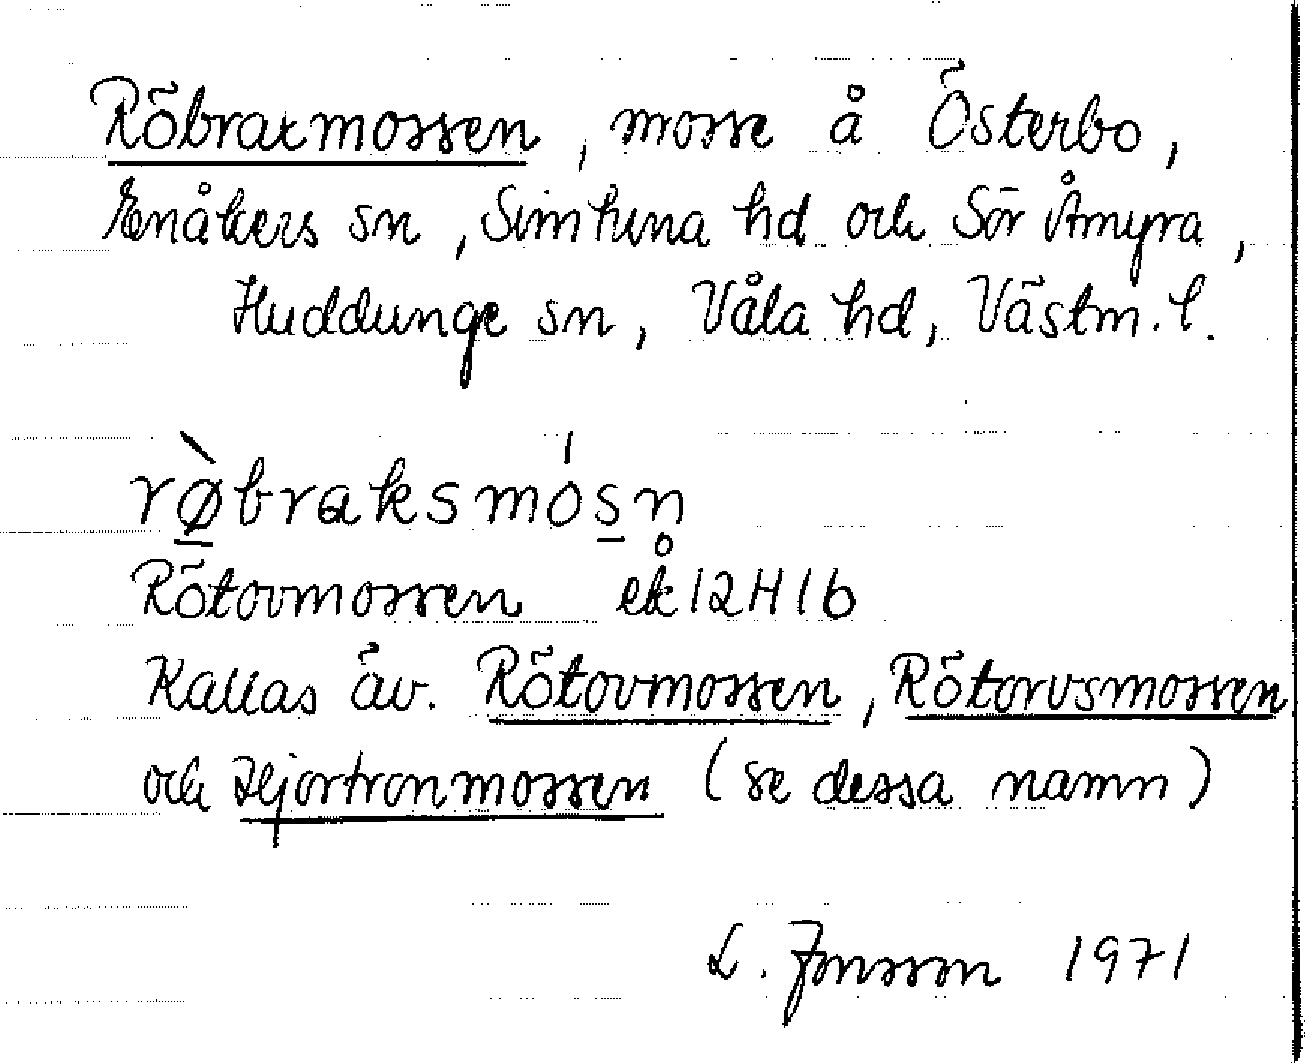 Röbraxmossen, mosse å Österbo,
Enåkers sn, Simtuna hd och Sör Åmyra,
Huddunge sn, Våla hd, Västm. l.
rø̀braksmósn
Rötovmossen ek 12H1b
Kallas äv. Rötovmossen, Rötorvsmossen
och Hjortronmossen (se dessa namn)
L. Jonsson 1971